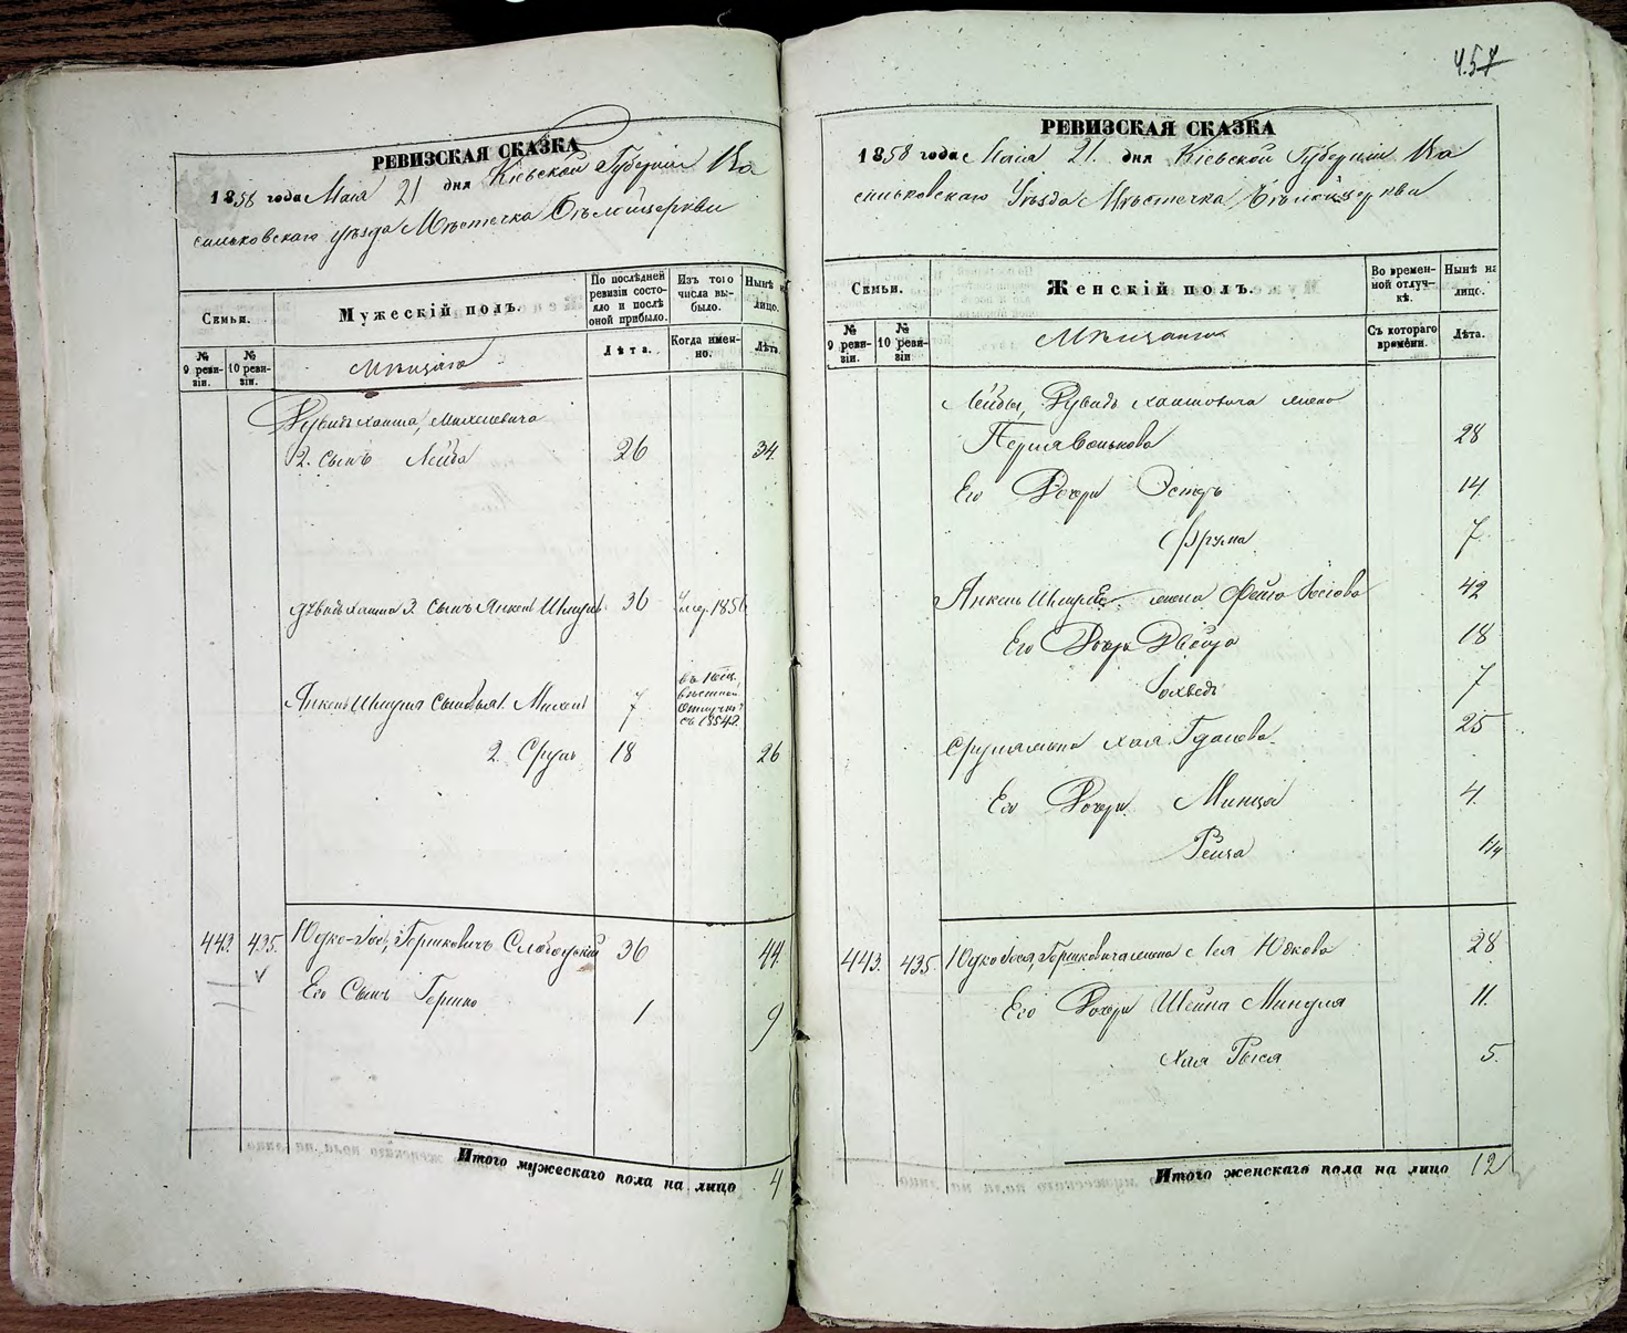 РЕВИЗСКАЯ СКАЗКА
1858 года Маія 21 дня Кіевской Губерніи Ва
сильковскаго уѣзда Мѣстечка Бѣлойцеркви
Семьи.
Мужескій полъ.
По послѣдней ревизіи состояло и послѣ оной прибыло.
Изъ того числа выбыло.
Нынѣ на лицо.
№ 9 ревизіи.
№ 10 ревизіи.
Мѣщане
Лѣта.
Когда именно.
Лѣта
Михелевича
2. сынъ Лейба 26 34
3. сынъ Янкель Шмуль 36 Умер. 1856
Янкель Шмуля Сыновья 1. Михель 7
съ 1854
2. Сруль 18 26
443. 435. Юдко-Іос, Гершковичъ Слободскій 36 44
Его Сынъ Гершко 1 9
Итого мужескаго пола на лицо 4
457
РЕВИЗСКАЯ СКАЗКА
1858 года Маія 21. дня Кіевской Губерніи Ва
сильковскаго Уѣзда Мѣстечка Бѣлойцеркви
Семьи.
Женскій полъ.
Во временной отлучкѣ.
Нынѣ на лицо.
№ 9 ревизіи.
№ 10 ревизіи
Мѣщане
Съ котораго времени.
Лѣта.
Лейбы, Хаимовича жена
28
Его Дочери Эстеръ 14
Фрума 7
Янкель Шмуля жена Фейга 42
Его Дочери Двойра 18
Іохведъ 7
Сруля жена Хая 25
Его Дочери Минца 4.
Рейза 1/4
443. 435. Юдко Гершковича жена Лея Юдкова 28
Его Дочери Шейна Миндля 11.
Хая Рыся 5.
Итого женскаго пола на лицо 12